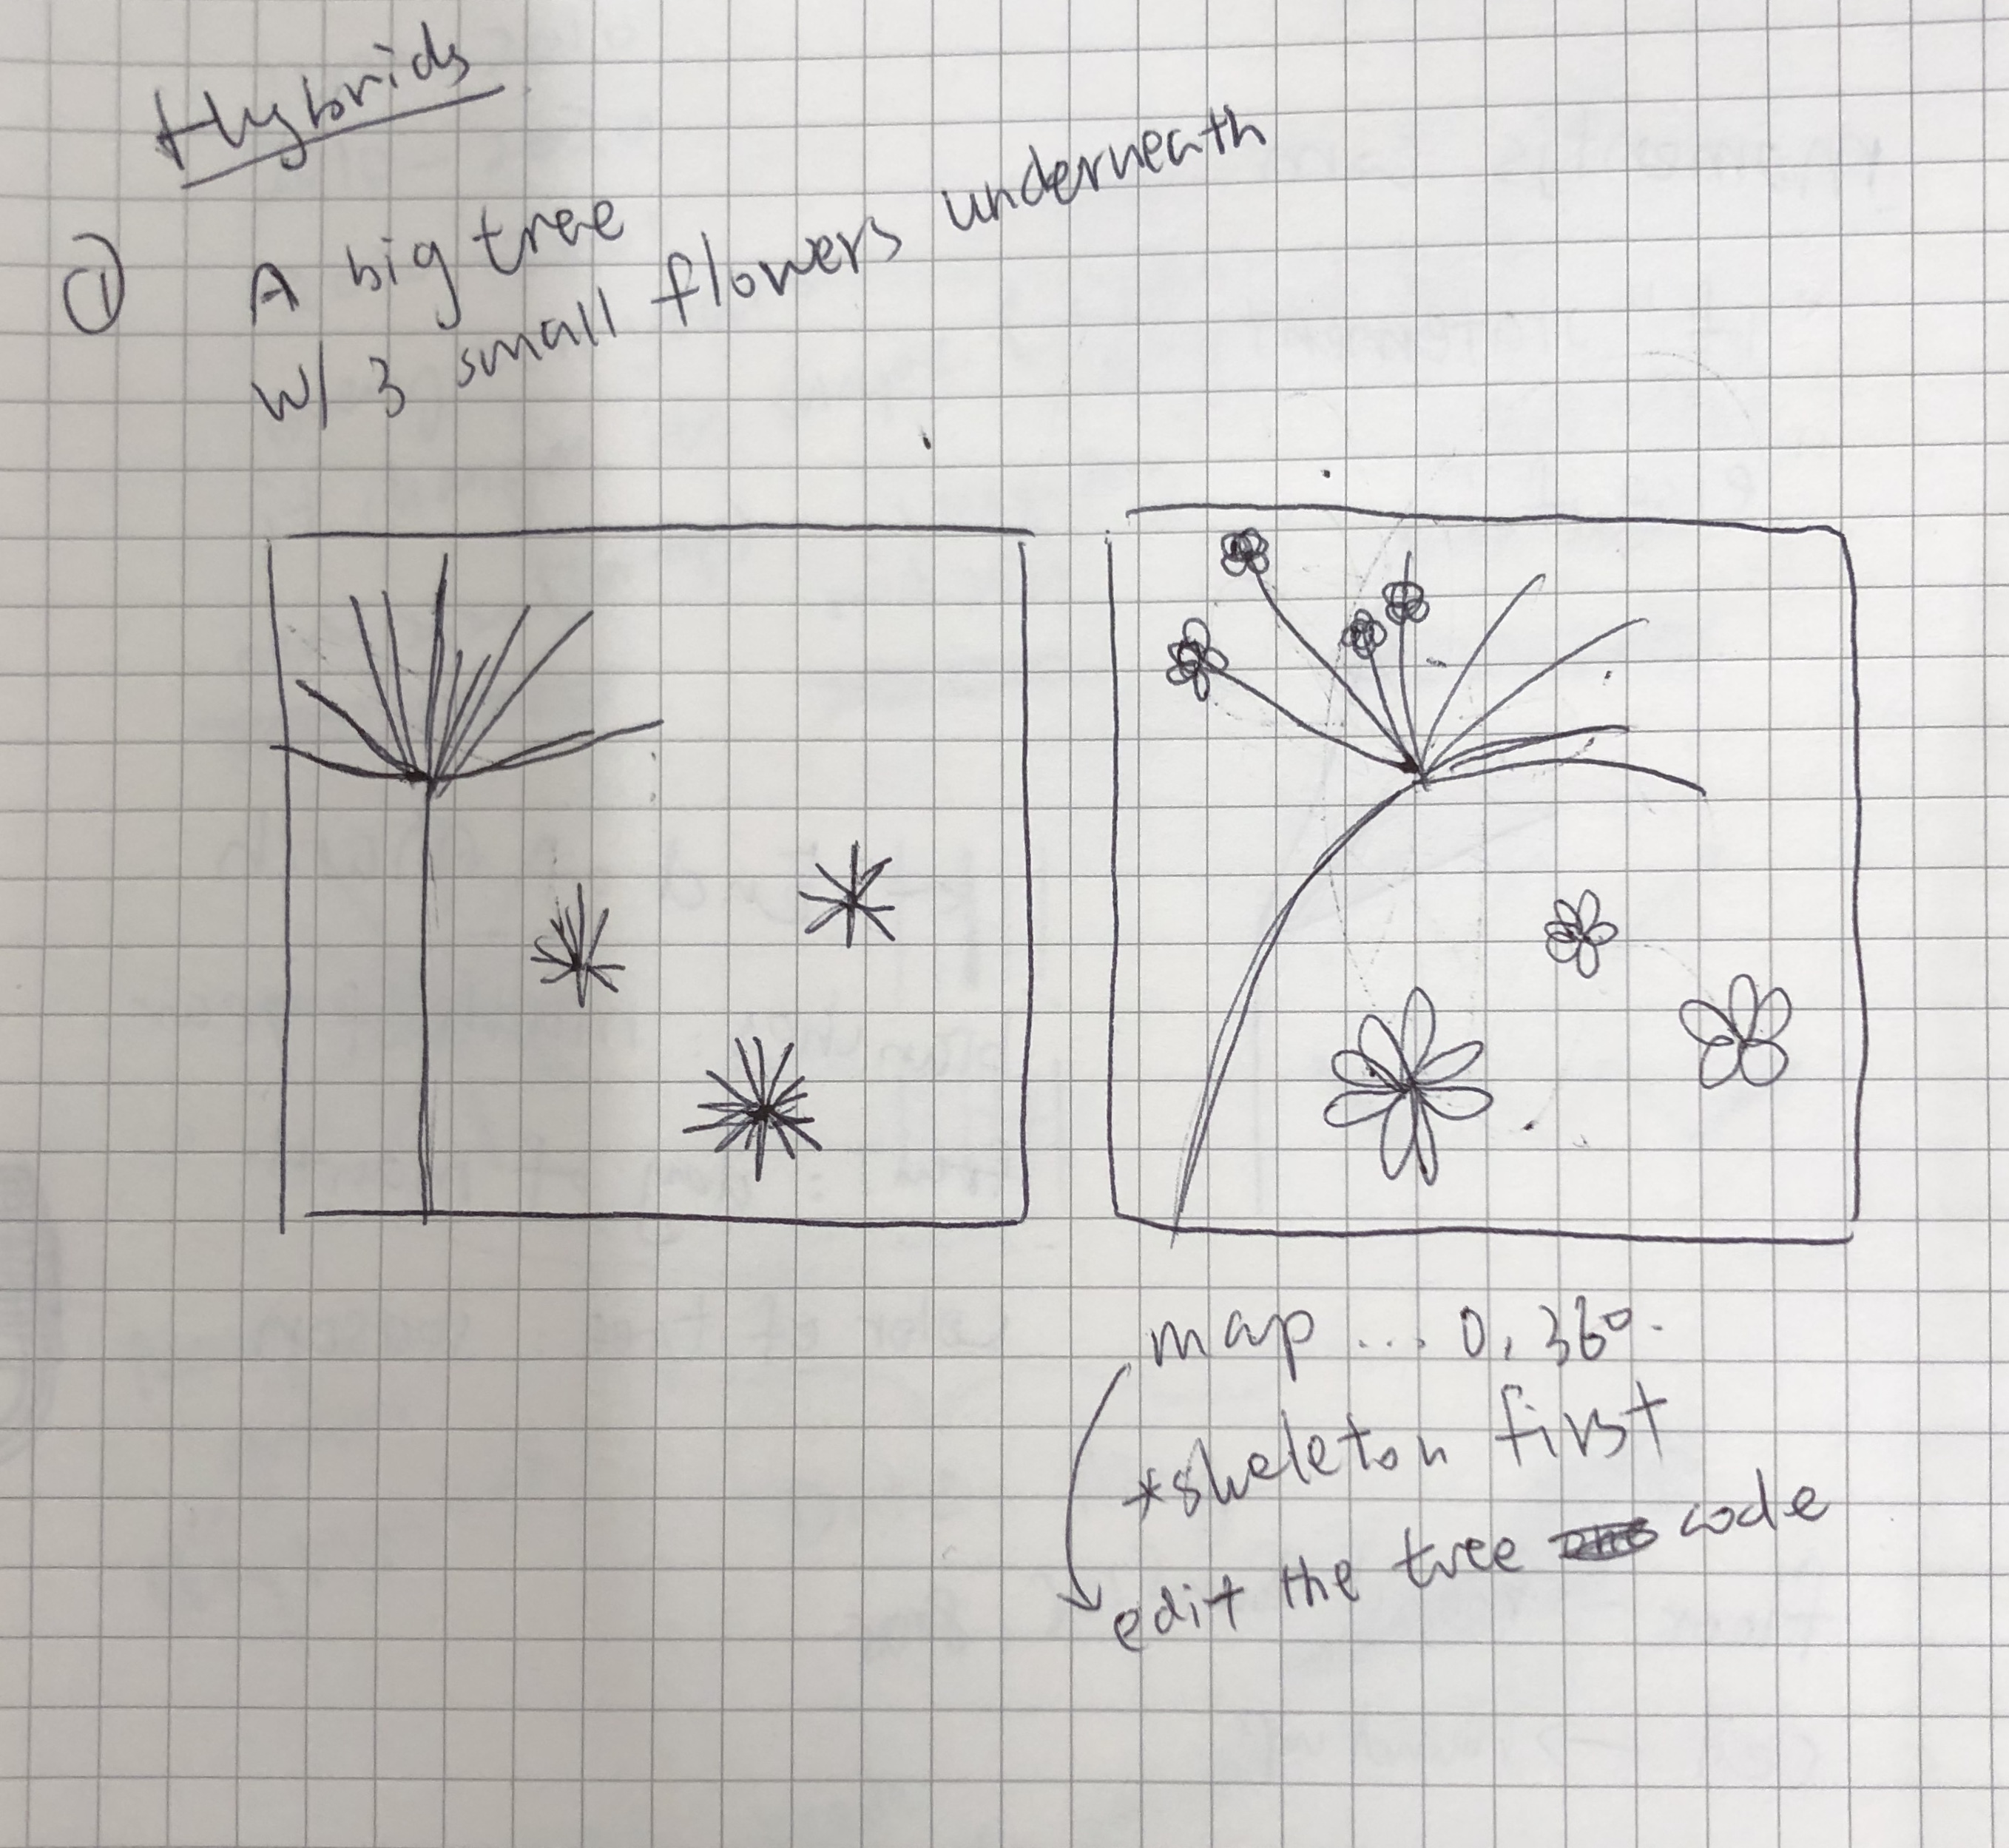 Hybrids
① A big tree
w/ 3 small flowers underneath
map ... 0, 360.
*skeleton first
edit the tree code